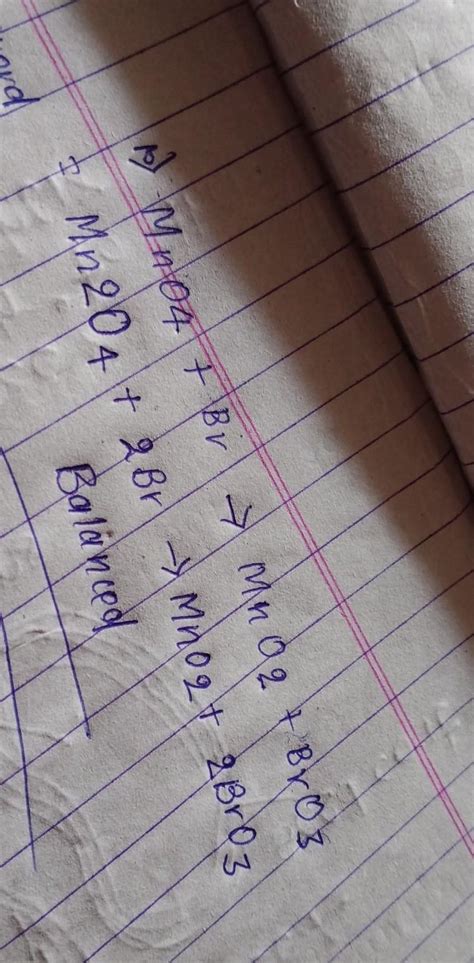 word
b) MnO4 + Br → MnO2 + BrO3
= Mn2O4 + 2Br → MnO2 + 2BrO3
Balanced